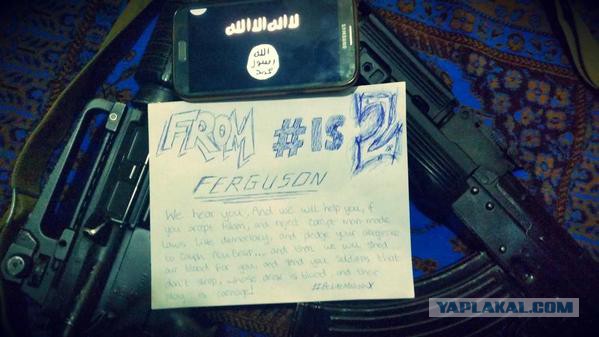 لا اله الا الله
الله
رسول
محمد
SAMSUNG
FROM #IS 2
FERGUSON
We hear you, And we will help you, if
you accept Islam, and reject corrupt man-made
laws like democracy, and pledge your allegiance
to Caliph Abu Bakr.... and then we will shed
our blood for you, and send you soldiers that
don't sleep, whose drink is blood, and their
play is carnage!
YAPLAKAL.COM